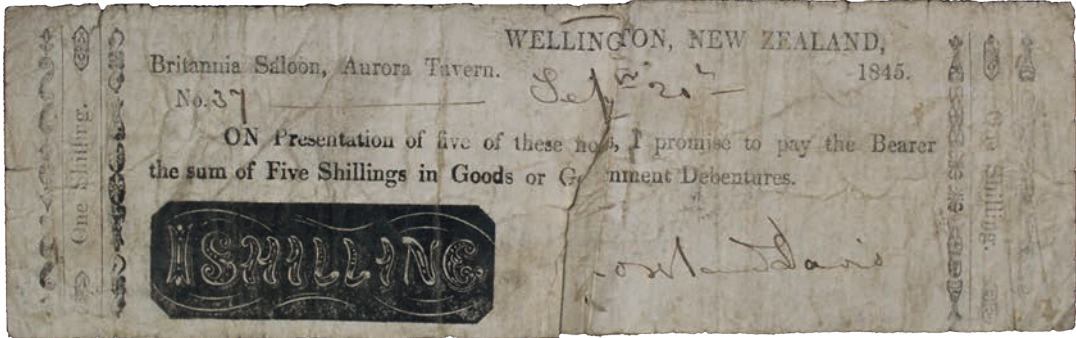 WELLINGTON, NEW ZEALAND,
Britannia Saloon, Aurora Tavern.
Septr 20th 1845.
No. 37
ON Presentation of five of these notes, I promise to pay the Bearer
the sum of Five Shillings in Goods or Government Debentures.
1 SHILLING.
Davis
One Shilling.
One Shilling.